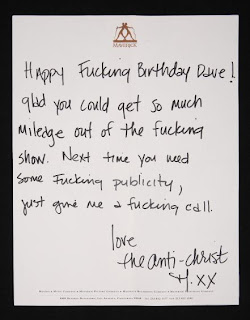 MAVERICK
Happy Fucking Birthday Dave!
glad you could get so much
mileage out of the fucking
show. Next time you need
some Fucking publicity,
just give me a fucking call.
love
the anti-christ
M. XX